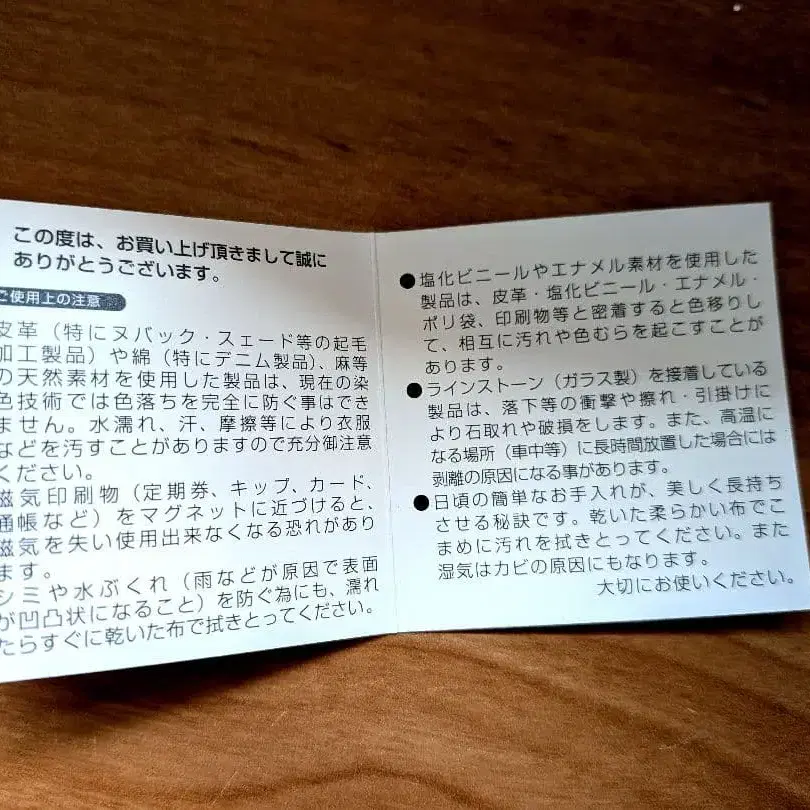 この度は、お買い上げ頂きまして誠に
ありがとうございます。
ご使用上の注意
皮革（特にヌバック・スェード等の起毛
加工製品）や綿（特にデニム製品）、麻等
の天然素材を使用した製品は、現在の染
色技術では色落ちを完全に防ぐ事はでき
ません。水濡れ、汗、摩擦等により衣服
などを汚すことがありますので充分御注意
ください。
磁気印刷物（定期券、キップ、カード、
通帳など）をマグネットに近づけると、
磁気を失い使用出来なくなる恐れがあり
ます。
シミや水ぶくれ（雨などが原因で表面
が凹凸状になること）を防ぐ為にも、濡れ
たらすぐに乾いた布で拭きとってください。
●塩化ビニールやエナメル素材を使用した
製品は、皮革・塩化ビニール・エナメル・
ポリ袋、印刷物等と密着すると色移りし
て、相互に汚れや色むらを起こすことが
あります。
●ラインストーン（ガラス製）を接着している
製品は、落下等の衝撃や擦れ・引掛けに
より石取れや破損をします。また、高温に
なる場所（車中等）に長時間放置した場合には
剥離の原因になる事があります。
●日頃の簡単なお手入れが、美しく長持ち
させる秘訣です。乾いた柔らかい布でこ
まめに汚れを拭きとってください。また
湿気はカビの原因にもなります。
大切にお使いください。